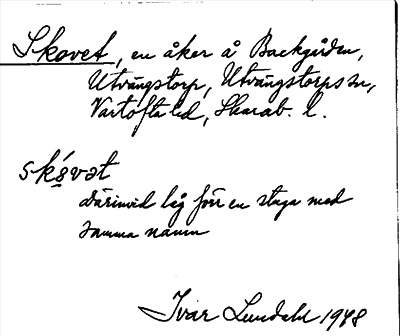 Skovet, en åker å Backgården,
Utvängstorp, Utvängstorps sn,
Vartofta hd, Skarab. l.
skǿvət
därinvid låg förr en stuga med
samma namn
Ivar Lundahl 1948